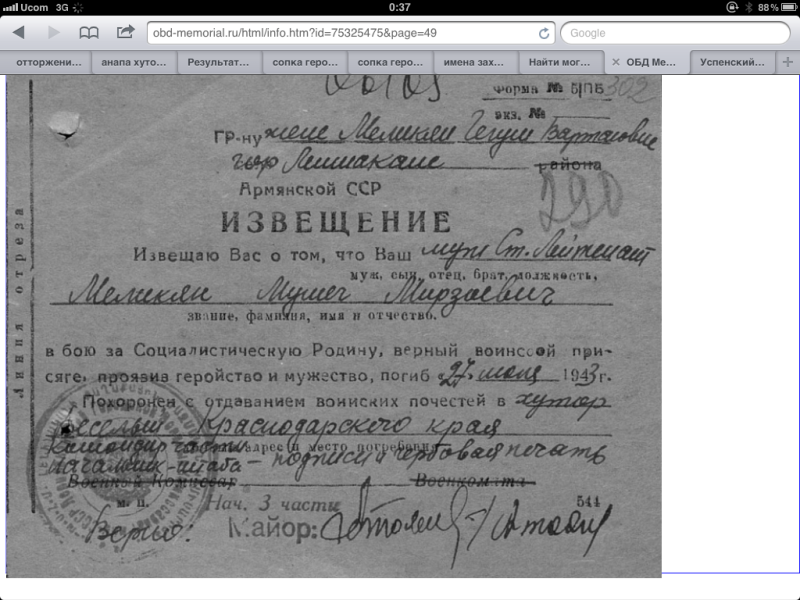 Ucom 3G 0:37 88%
obd-memorial.ru/html/info.htm?id=75325475&page=49 Google
отторжени... анапа хуто... Результат... сопка геро... сопка геро... имена зах... Найти мог... ОБД Ме... Успенский...
Форма № 5/ПБ 302
экз. №
Гр-ну жене Меликян Гегуш Вартановне
гор Ленинакане района
Армянской ССР
290
ИЗВЕЩЕНИЕ
Извещаю Вас о том, что Ваш муж Ст. Лейтенант
муж, сын, отец, брат, должность,
Меликян Мушег Мирзоевич
звание, фамилия, имя и отчество.
в бою за Социалистическую Родину, верный воинской при-
сяге, проявив геройство и мужество, погиб 27 1943 г.
Похоронен с отдаванием воинских почестей в хутор
Веселый Краснодарского края
адрес и место погребения
Командир части
Начальник штаба – подписи и гербовая печать
Военный Комиссар Военкомата
м. п. Нач. 3 части 544
Верно: Майор:
Линия отреза